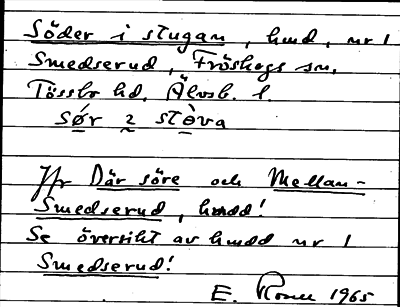 Söder i stugan, hmd, nr 1
Smedserud, Fröskogs sn.
Tössbo hd. Älvsb. l.
sør 2 stòva
Jfr Där söre och Mellan-
Smedserud, hmdd!
Se översikt av hmdd nr 1
Smedserud!
E. 1965